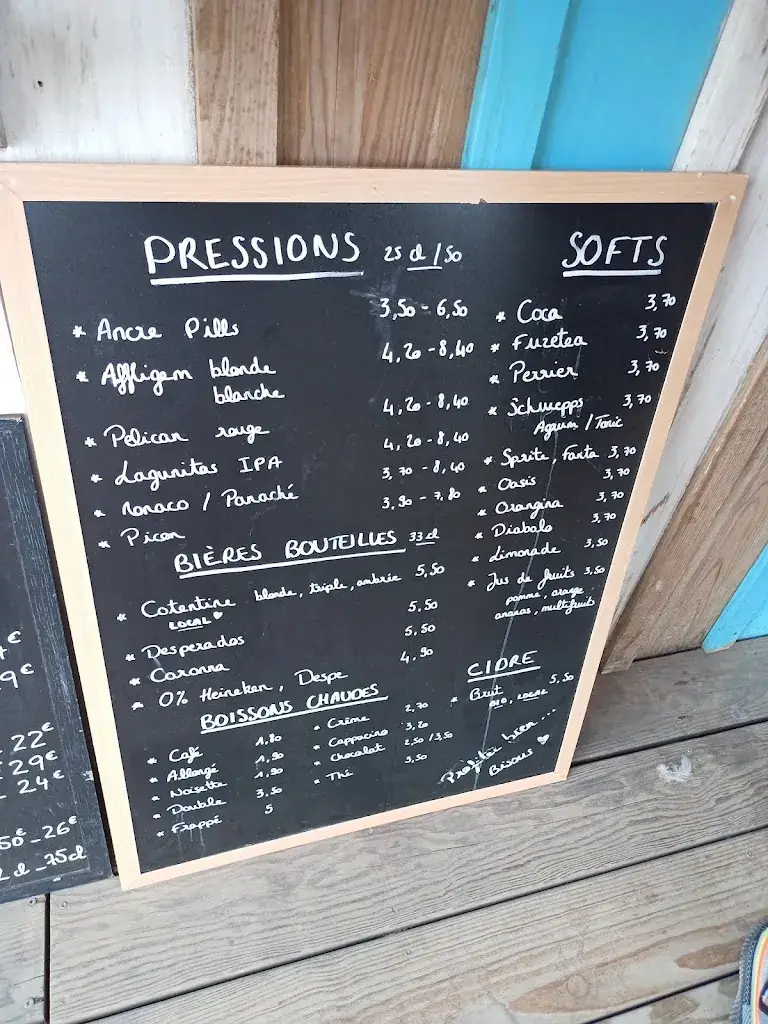 PRESSIONS 25 cl / 50
* Ancre Pills 3,50 - 6,50
* Affligem blonde 4,20 - 8,40
blanche
* Pelican rouge 4,20 - 8,40
* Lagunitas IPA 4,20 - 8,40
* Monaco / Panaché 3,70 - 8,40
* Picon 3,90 - 7,80
BIÈRES BOUTEILLES 33 cl
* Cotentine blonde, triple, ambrée 5,50
LOCAL ♥
* Desperados 5,50
* Coronna 5,50
* 0% Heineken, Despe 4,90
BOISSONS CHAUDES
* Café 1,80
* Allongé 1,90
* Noisette 1,90
* Double 3,50
* Frappé 5
* Crème 2,70
* Cappucino 3,20
* Chocolat 2,50 / 3,50
* Thé 3,50
SOFTS
* Coca 3,70
* Fuzetea 3,70
* Perrier 3,70
* Schwepps 3,70
Agrum / Tonic
* Sprite, Fanta 3,70
* Oasis 3,70
* Orangina 3,70
* Diabolo 3,70
* Limonade 3,50
* Jus de fruits 3,50
pomme, orange
ananas, multifruits
CIDRE
* Brut 5,50
BIO, LOCAL
Profitez bien ...
Bisous ♥
9€
22€
29€
24€
50€ - 26€
2 cl - 75cl